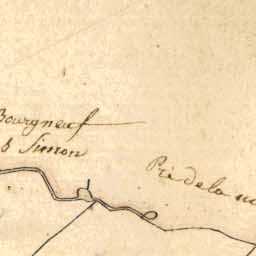 Bourgneuf
Simon
Pré de la